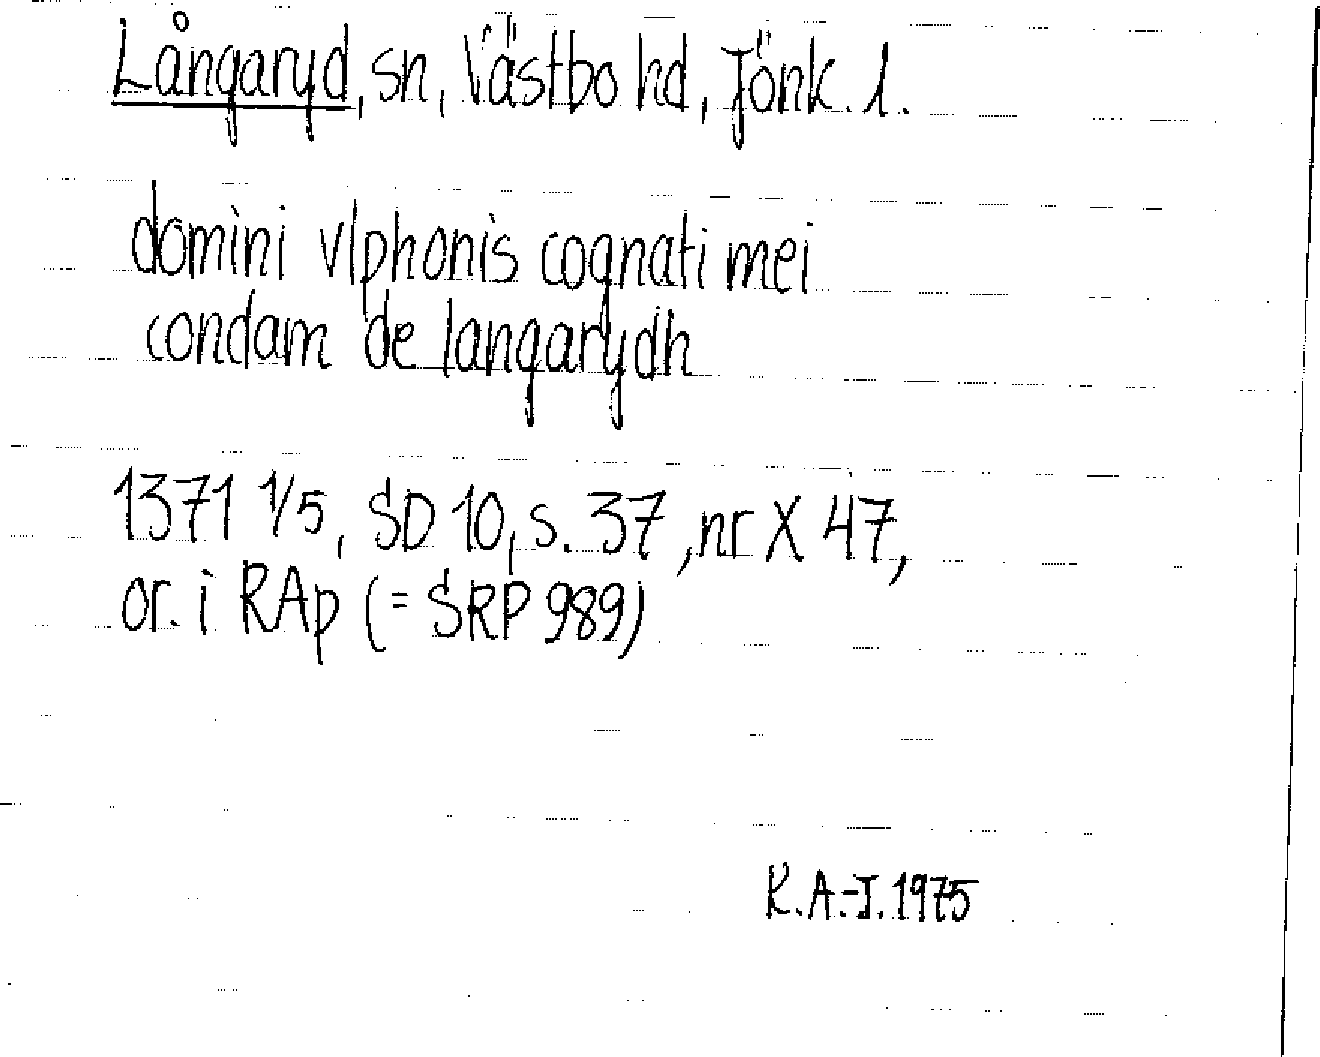 Långaryd, sn, Västbo hd, Jönk. l.
domini vlphonis cognati mei
condam de langarydh
1371 1/5, SD 10, s. 37, nr X 47,
or. i RAp (= SRP 989)
R.A.-J. 1975